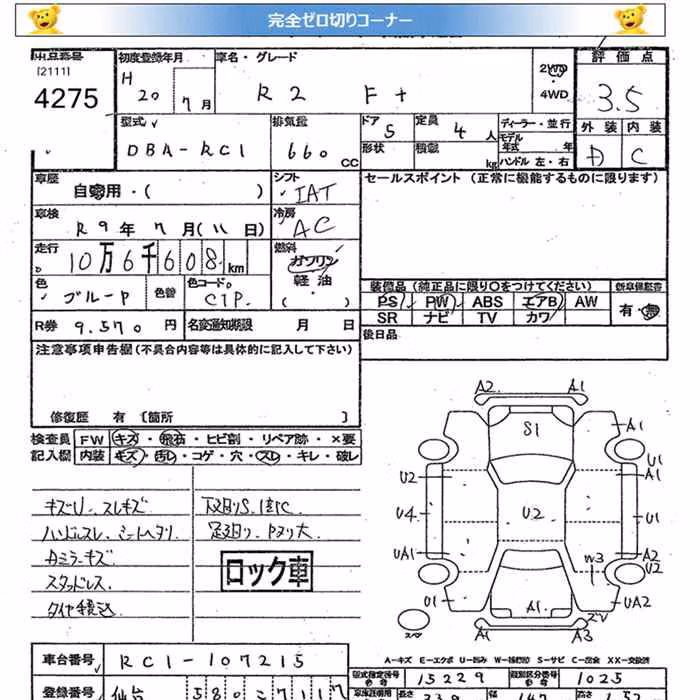 完全ゼロ切りコーナー
出品番号
[2111]
4275
初度登録年月
H 20 7月
車名・グレード
R2 F+
2WD
4WD
評価点
3.5
外装 内装
D C
型式
DBA-RC1
排気量
660 CC
ドア 5
形状
定員 4 人
積載 kg
ディーラー・並行
モデル年式 年
ハンドル 左・右
車歴
自家用・( )
シフト
IAT
セールスポイント (正常に機能するものに限ります)
車検
R9年7月(11日)
冷房
AC
走行
10万6千608 km
燃料
ガソリン
軽油
( )
色
ブルーP
色替
色コードO
C1P
装備品(純正品に限り〇をつけてください)
新車保証書
PS PW ABS エアB AW
SR ナビ TV カワ
有・無
R券 9.570 円
名変通知期限 月 日
後日品
注意事項申告欄(不具合内容等は具体的に記入して下さい)
修復歴 有 〔箇所 〕
検査員 FW キズ・飛石・ヒビ割・リペア跡・×要
記入欄 内装 キズ・汚レ・コゲ・穴・スレ・キレ・破レ
キズU.スレキズ
ハンドルスレ.シートヘタリ
Aミラーキズ
スタッドレス
タイヤ積込
下廻りS.
足廻り.
ロック車
A2 A1
S1
A1
U1
U2
A1
U4
U2
U1
UA1
A2
W3
U2
U1
A1
UA2
スペア
A1
A3
A-キズ E-エクボ U-凹み W-補修跡 S-サビ C-腐食 XX-交換済
車台番号
RC1-107215
型式指定番号
参考
15229
類別区分番号
参考
1025
登録番号
仙台 580
長さ